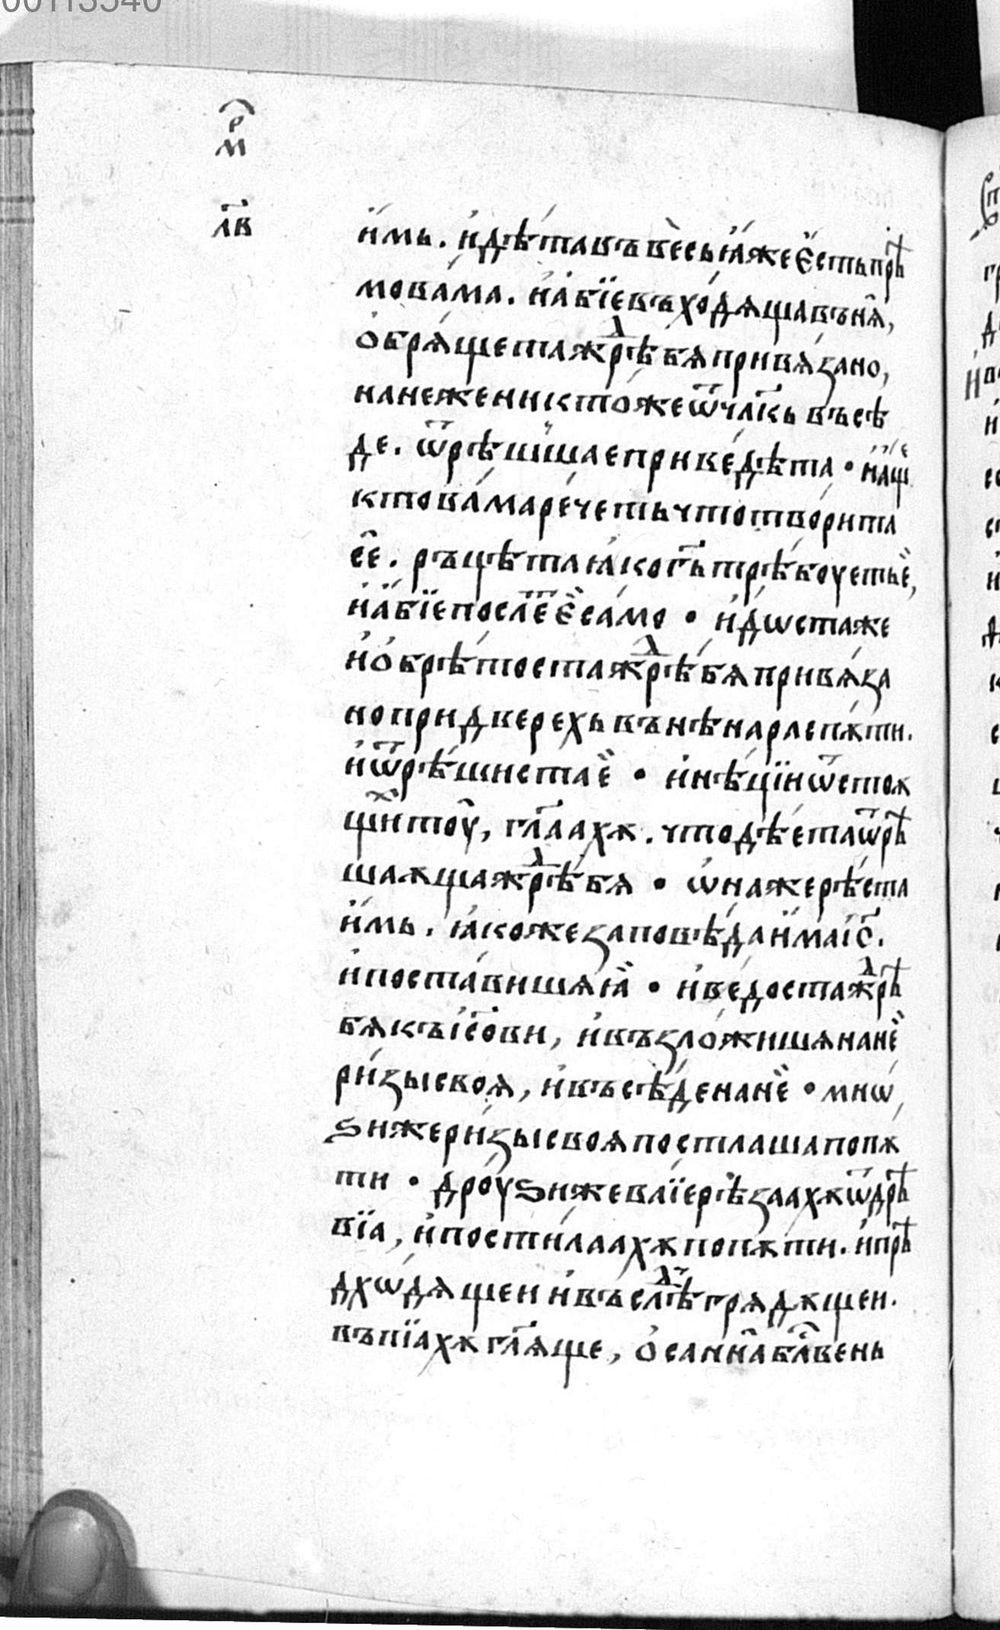 00113540
м҃р
л҃в
и҆́мь. и҆дѣ́та въ вѐсь ꙗ҆́же є҆́сть прѣⷨ
мо ва́ма. и҆ а҆́бїе въходѧща въ нѧ̑,
ѻ҆брѧ́щета жрѣ́бѧ привѧ́зано,
на неже никто́же ѿ чл҃кь въсѣ
де. ѿрѣши́ша е приведѣ́та • и҆ а҆́щѐ
кто ва́ма рече́ть что твори́та
сѐе. ръцѣ́та ꙗ҆́ко г҃ь трѣ́боуеть є҆̀,
и҆ а҆́бїе после҃ є҆̀ сѣ́мо • и҆до́ста же
и҆ ѻ҆брѣто́ста жрѣ́бѧ привѧ́за
но при две́рехь вънѣ на распѫ́ти.
и҆ ѿрѣши́ста є҆̀ • и҆ нѣ́цїи ѿ стоѫ
щи́х тоу̑, гл҃аахѫ. что дѣ́ета ѿрѣ
шаѫща жрѣ́бѧ • ѡ҆на́же рѣ́ста
и҆́мь. ꙗ҆́коже заповѣ́да и҆́ма і҆с҃.
и҆ поста́вишѧ ꙗ҆̀ • и҆ ведо́ста жрѣ
бѧ къ і҆с҃ови, и҆ възложи́шѧ на нѐ
ри́зы своѧ̀, и҆ въсѣ́де на нѐ • мнѡ
ѕи же ри́зы своѧ постлаша по пѫ
ти • дроу́ѕи же ва́їе рѣ́заахѫ ѿ дрѣ
вїа, и҆ постила́ахѫ по пѫти. и҆ прѣ
дхѡдѧщеи и҆ въслѣд грѧдѫщеи.
въпїа́хѫ гл҃ѧще, ѻ҆санна̀ бл҃вень